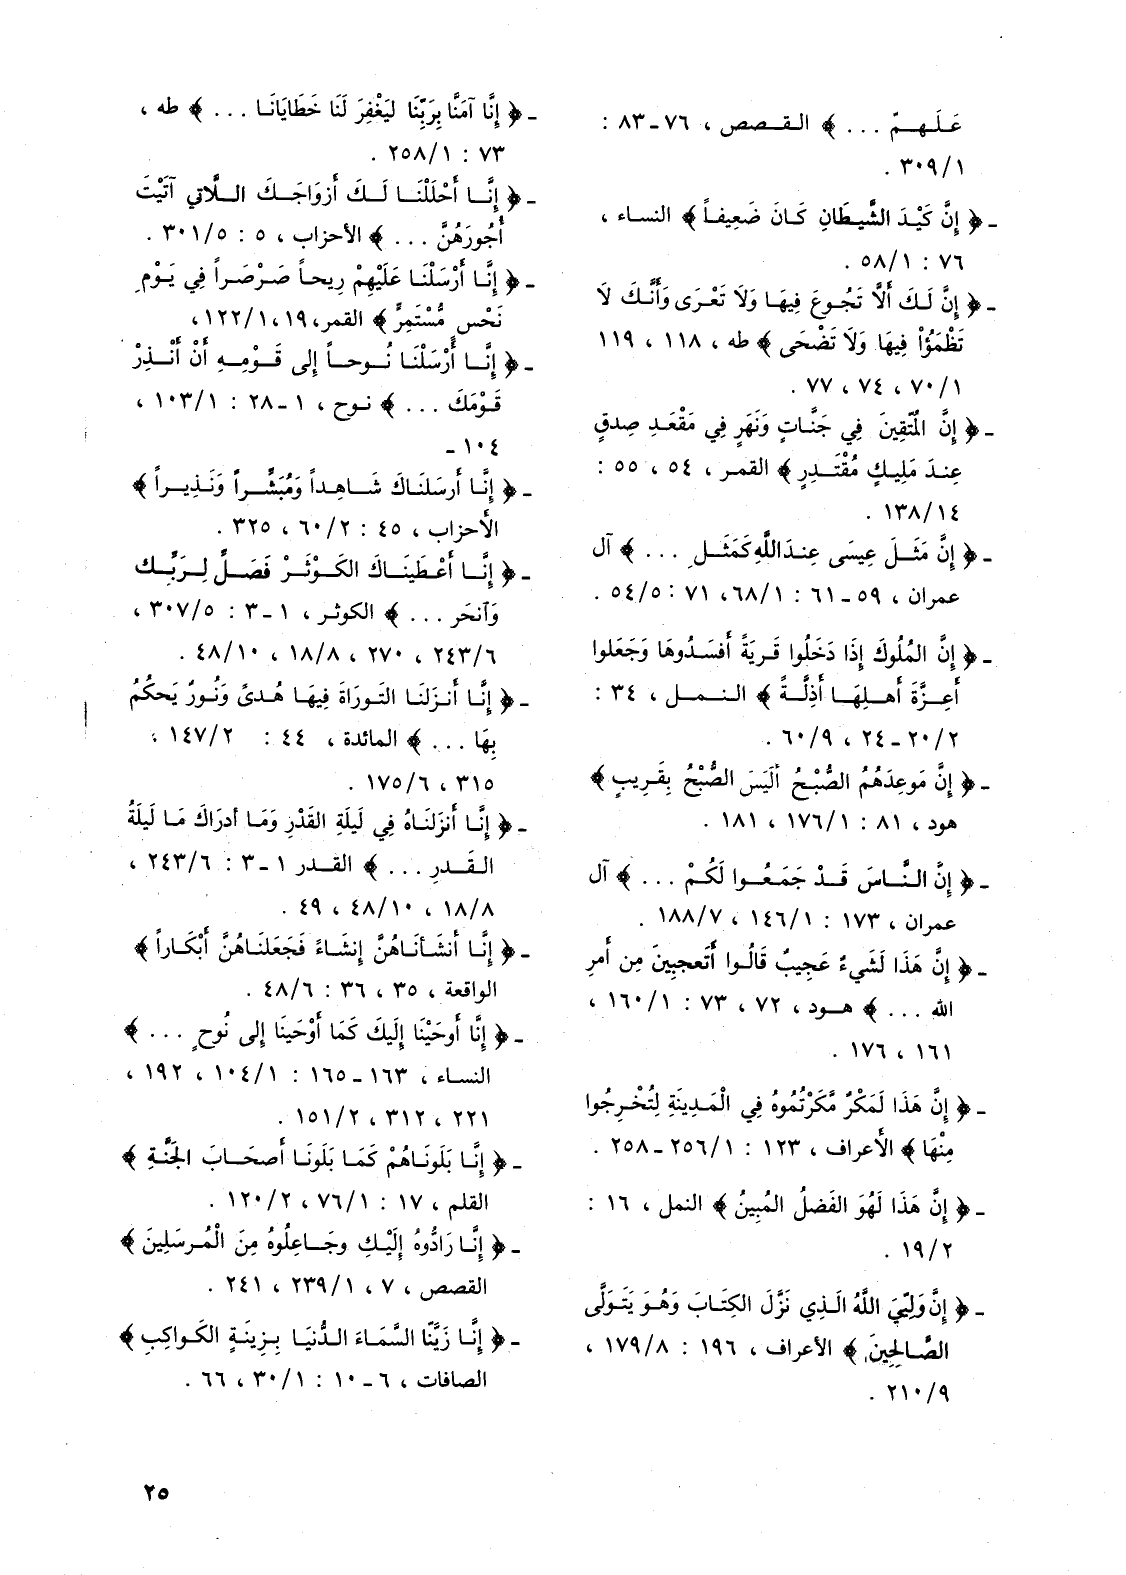 عَلَـهِـمّ . . . ﴾ القـصـص ، ٧٦ـ٨٣ :
٣٠٩/١ .
ـ ﴿ إِنَّ كَيْدَ الشَّيطَانِ كَانَ ضَعِيفاً ﴾ النساء ،
٧٦ : ٥٨/١ .
ـ ﴿ إِنَّ لَـكَ أَلاَّ تَجُـوعَ فِيهَـا وَلاَ تَعْـرَى وَأَنَّـكَ لاَ
تَظْمَؤُاْ فِيهَا وَلاَ تَضْحَى ﴾ طه ، ١١٨ ، ١١٩
٧٠/١ ، ٧٤ ، ٧٧ .
ـ ﴿ إِنَّ المُتّقِينَ فِي جَنَّاتٍ وَنَهَرٍ فِي مَقْعَدِ صِدقٍ
عِندَ مَلِيكٍ مُقْتَدِرٍ ﴾ القمـر ، ٥٤ ، ٥٥ :
١٣٨/١٤ .
ـ ﴿ إِنَّ مَثَـلَ عِيسَى عِندَ اللَّهِ كَمَثَـلِ . . . ﴾ آل
عمران ، ٥٩ـ٦١ : ٦٨/١، ٧١ : ٥٤/٥ .
ـ ﴿ إِنَّ المُلُوكَ إِذَا دَخَلُوا قَـريَةً أَفسَـدُوهَا وَجَعَلوا
أَعِـزَّةَ أَهـلِهَـا أَذِلَّـةً ﴾ النـمـل ، ٣٤ :
٢٠/٢ـ٢٤ ، ٦٠/٩ .
ـ ﴿ إِنَّ مَوعِدَهُمُ الصُّبْـحُ أَلَيسَ الصُّبْحُ بِقَـرِيبٍ ﴾
هود ، ٨١ : ١٧٦/١ ، ١٨١ .
ـ ﴿ إِنَّ النَّـاسَ قَـدْ جَمَـعُـوا لَكُـمْ . . . ﴾ آل
عمران ، ١٧٣ : ١٤٦/١ ، ١٨٨/٧ .
ـ ﴿ إِنَّ هَذَا لَشَيءٌ عَجِيبٌ قَالُـوا أَتَعجبِينَ مِن أَمرِ
الله . . . ﴾ هـود ، ٧٢ ، ٧٣ : ١٦٠/١ ،
١٦١ ، ١٧٦ .
ـ ﴿ إِنَّ هَذَا لَمَكْرٌ مَّكَرْتُمُوهُ فِي الْمَـدِينَةِ لِتُخْـرِجُوا
مِنْهَا ﴾ الأعراف ، ١٢٣ : ٢٥٦/١ـ٢٥٨ .
ـ ﴿ إِنَّ هَذَا لَهُوَ الفَضلُ المُبِينُ ﴾ النمل ، ١٦ :
١٩/٢ .
ـ ﴿ إِنَّ وَلِيّيَ اللَّهُ الَـذِي نَزَّلَ الكِتَـابَ وَهُـوَ يَتَـوَلَّى
الصَّـالِحِينَ ﴾ الأعراف ، ١٩٦ : ١٧٩/٨ ،
٢١٠/٩ .
ـ ﴿ إِنَّا آمَنَّا بِرَبِّنَا لِيَغْفِرَ لَنَا خَطَايَانَـا . . . ﴾ طه ،
٧٣ : ٢٥٨/١ .
ـ ﴿ إِنَّـا أَحْلَلْنَـا لَـكَ أَزوَاجَـكَ الـلَّاتي آتَيْتَ
أُجُورَهُنَّ . . . ﴾ الأحزاب ، ٥ : ٣٠١/٥ .
ـ ﴿ إِنَّـا أَرْسَلْنَـا عَلَيْهِمْ رِيحـاً صَـرْصَـراً فِي يَـوْمِ
نَحْسٍ مُّسْتَمِرٍّ ﴾ القمر، ١٩، ١٢٢/١،
ـ ﴿ إِنَّـا أَرْسَلْنَـا نُـوحـاً إِلى قَـوْمِـهِ أَنْ أَنْـذِرْ
قَـوْمَكَ . . . ﴾ نـوح ، ١ـ٢٨ : ١٠٣/١ ،
١٠٤ ـ
ـ ﴿ إِنَّـا أَرسَلنَـاكَ شَـاهِـداً وَمُبَشِّـراً وَنَـذِيـراً ﴾
الأحزاب ، ٤٥ : ٦٠/٢ ، ٣٢٥ .
ـ ﴿ إِنَّـا أَعْـطَينَـاكَ الكَـوْثَـرْ فَصَـلِّ لِـرَبِّـك
وَآنحَر . . . ﴾ الكوثـر ، ١ـ٣ : ٣٠٧/٥ ،
٢٤٣/٦ ، ٢٧٠ ، ١٨/٨ ، ٤٨/١٠ .
ـ ﴿ إِنَّـا أَنـزَلنَـا التَـورَاةَ فِيهَـا هُـدىً وَنُـورٌ يَحكُمُ
بِهَا . . . ﴾ المائدة ، ٤٤ : ١٤٧/٢ ،
٣١٥ ، ١٧٥/٦ .
ـ ﴿ إِنَّـا أَنزَلنَـاهُ فِي لَيلَةِ القَدْرِ وَمَـا أدرَاكَ مَـا لَيلَةُ
القَـدرِ . . . ﴾ القـدر ١ـ٣ : ٢٤٣/٦ ،
١٨/٨ ، ٤٨/١٠ ، ٤٩ .
ـ ﴿ إِنَّـا أَنشَـأنَـاهُنَّ إِنشَـاءً فَجَعَلنَـاهُنَّ أَبْكَـاراً ﴾
الواقعة ، ٣٥ ، ٣٦ : ٤٨/٦ .
ـ ﴿ إِنَّا أَوحَيْنَا إِلَيكَ كَمَا أَوْحَينَا إِلى نُوحٍ . . . ﴾
النساء ، ١٦٣ـ١٦٥ : ١٠٤/١ ، ١٩٢ ،
٢٢١ ، ٣١٢ ، ١٥١/٢ .
ـ ﴿ إِنَّـا بَلَونَـاهُمْ كَمَـا بَلَونَـا أَصحَـابَ الجَنَّـةِ ﴾
القلم ، ١٧ : ٧٦/١ ، ١٢٠/٢ .
ـ ﴿ إِنَّـا رَادُّوهُ إِلَيْـكِ وجَـاعِلُوهُ مِنَ الْمُـرسَلِينَ ﴾
القصص ، ٧ ، ٢٣٩/١ ، ٢٤١ .
ـ ﴿ إِنَّـا زَيَّنّا السَّمَـاءَ الـدُّنيَـا بِـزِينَـةٍ الكَـواكِبِ ﴾
الصافات ، ٦ـ١٠ : ٣٠/١ ، ٦٦ .
٢٥